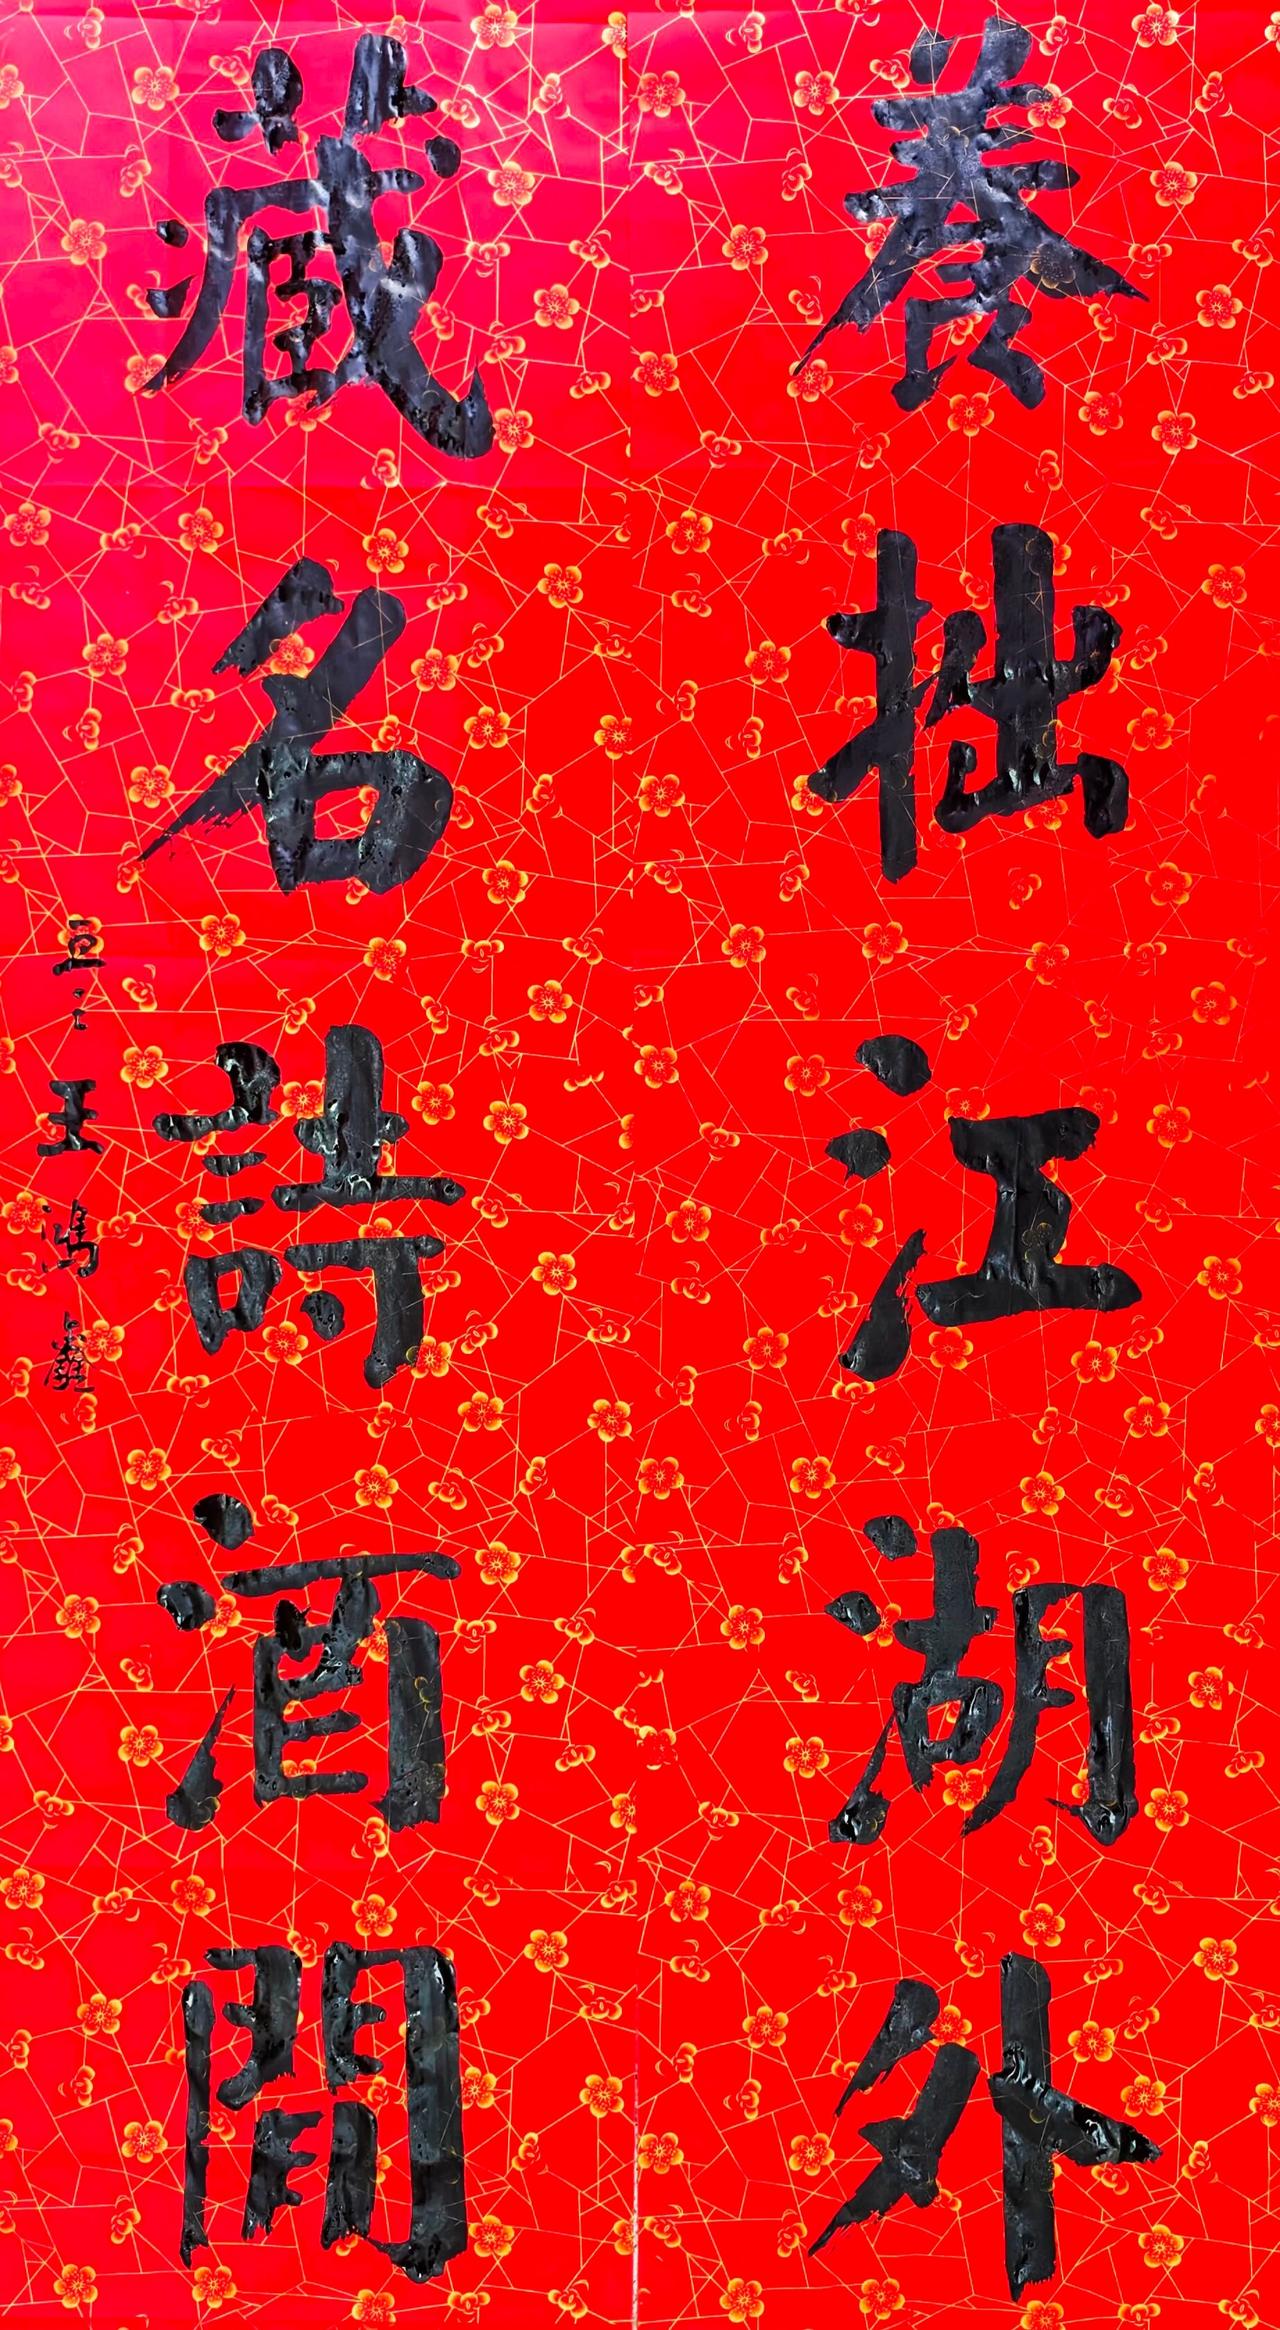 養拙江湖外
藏名詩酒間
王鴻鑫